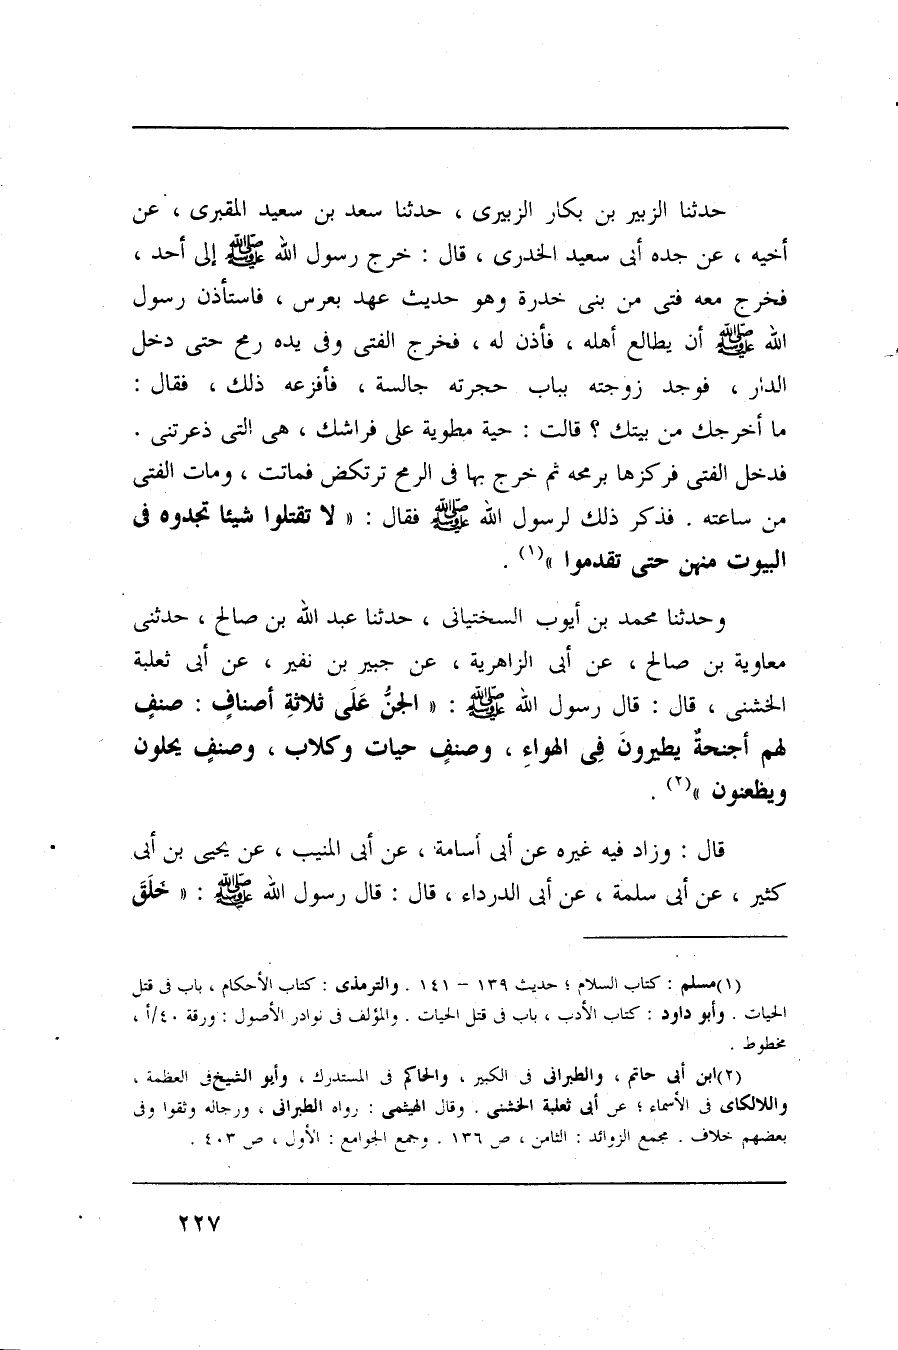 حدثنا الزبير بن بكار الزبيرى ، حدثنا سعد بن سعيد المقبرى ، عن
أخيه ، عن جده أبى سعيد الخدرى ، قال : خرج رسول الله ﷺ إلى أحد ،
فخرج معه فتى من بنى خدرة وهو حديث عهد بعرس ، فاستأذن رسول
الله ﷺ أن يطالع أهله ، فأذن له ، فخرج الفتى وفى يده رمح حتى دخل
الدار ، فوجد زوجته بباب حجرته جالسة ، فأفزعه ذلك ، فقال :
ما أخرجك من بيتك ؟ قالت : حية مطوية على فراشك ، هى التى ذعرتنى .
فدخل الفتى فركزها برمحه ثم خرج بها فى الرمح ترتكض فماتت ، ومات الفتى
من ساعته . فذكر ذلك لرسول الله ﷺ فقال : « لا تقتلوا شيئا تجدوه فى
البيوت منهن حتى تقدموا »(١) .
وحدثنا محمد بن أيوب السختيانى ، حدثنا عبد الله بن صالح ، حدثنى
معاوية بن صالح ، عن أبى الزاهرية ، عن جبير بن نفير ، عن أبى ثعلبة
الخشنى ، قال : قال رسول الله ﷺ : « الجنُّ عَلَى ثلاثةِ أصنافٍ : صنفٍ
لهم أجنحةٌ يطيرونَ فِى الهواءِ ، وصنفٍ حيات وكلاب ، وصنفٍ يحلون
ويظعنون »(٢) .
قال : وزاد فيه غيره عن أبى أسامة ، عن أبى المنيب ، عن يحيى بن أبى
كثير ، عن أبى سلمة ، عن أبى الدرداء ، قال : قال رسول الله ﷺ : « خَلَقَ
(١)مسلم : كتاب السلام ؛ حديث ١٣٩ – ١٤١ . والترمذى : كتاب الأحكام ، باب فى قتل
الحيات . وأبو داود : كتاب الأدب ، باب فى قتل الحيات . والمؤلف فى نوادر الأصول : ورقة ٤٠/أ ،
مخطوط .
(٢)ابن أبى حاتم ، والطبرانى فى الكبير ، والحاكم فى المستدرك ، وأبو الشيخ فى العظمة ،
واللالكاى فى الأسماء ؛ عن أبى ثعلبة الخشنى . وقال الهيثمى : رواه الطبرانى ، ورجاله وثقوا وفى
بعضهم خلاف . مجمع الزوائد : الثامن ، ص ١٣٦ . وجمع الجوامع : الأول ، ص ٤٠٣ .
٢٢٧